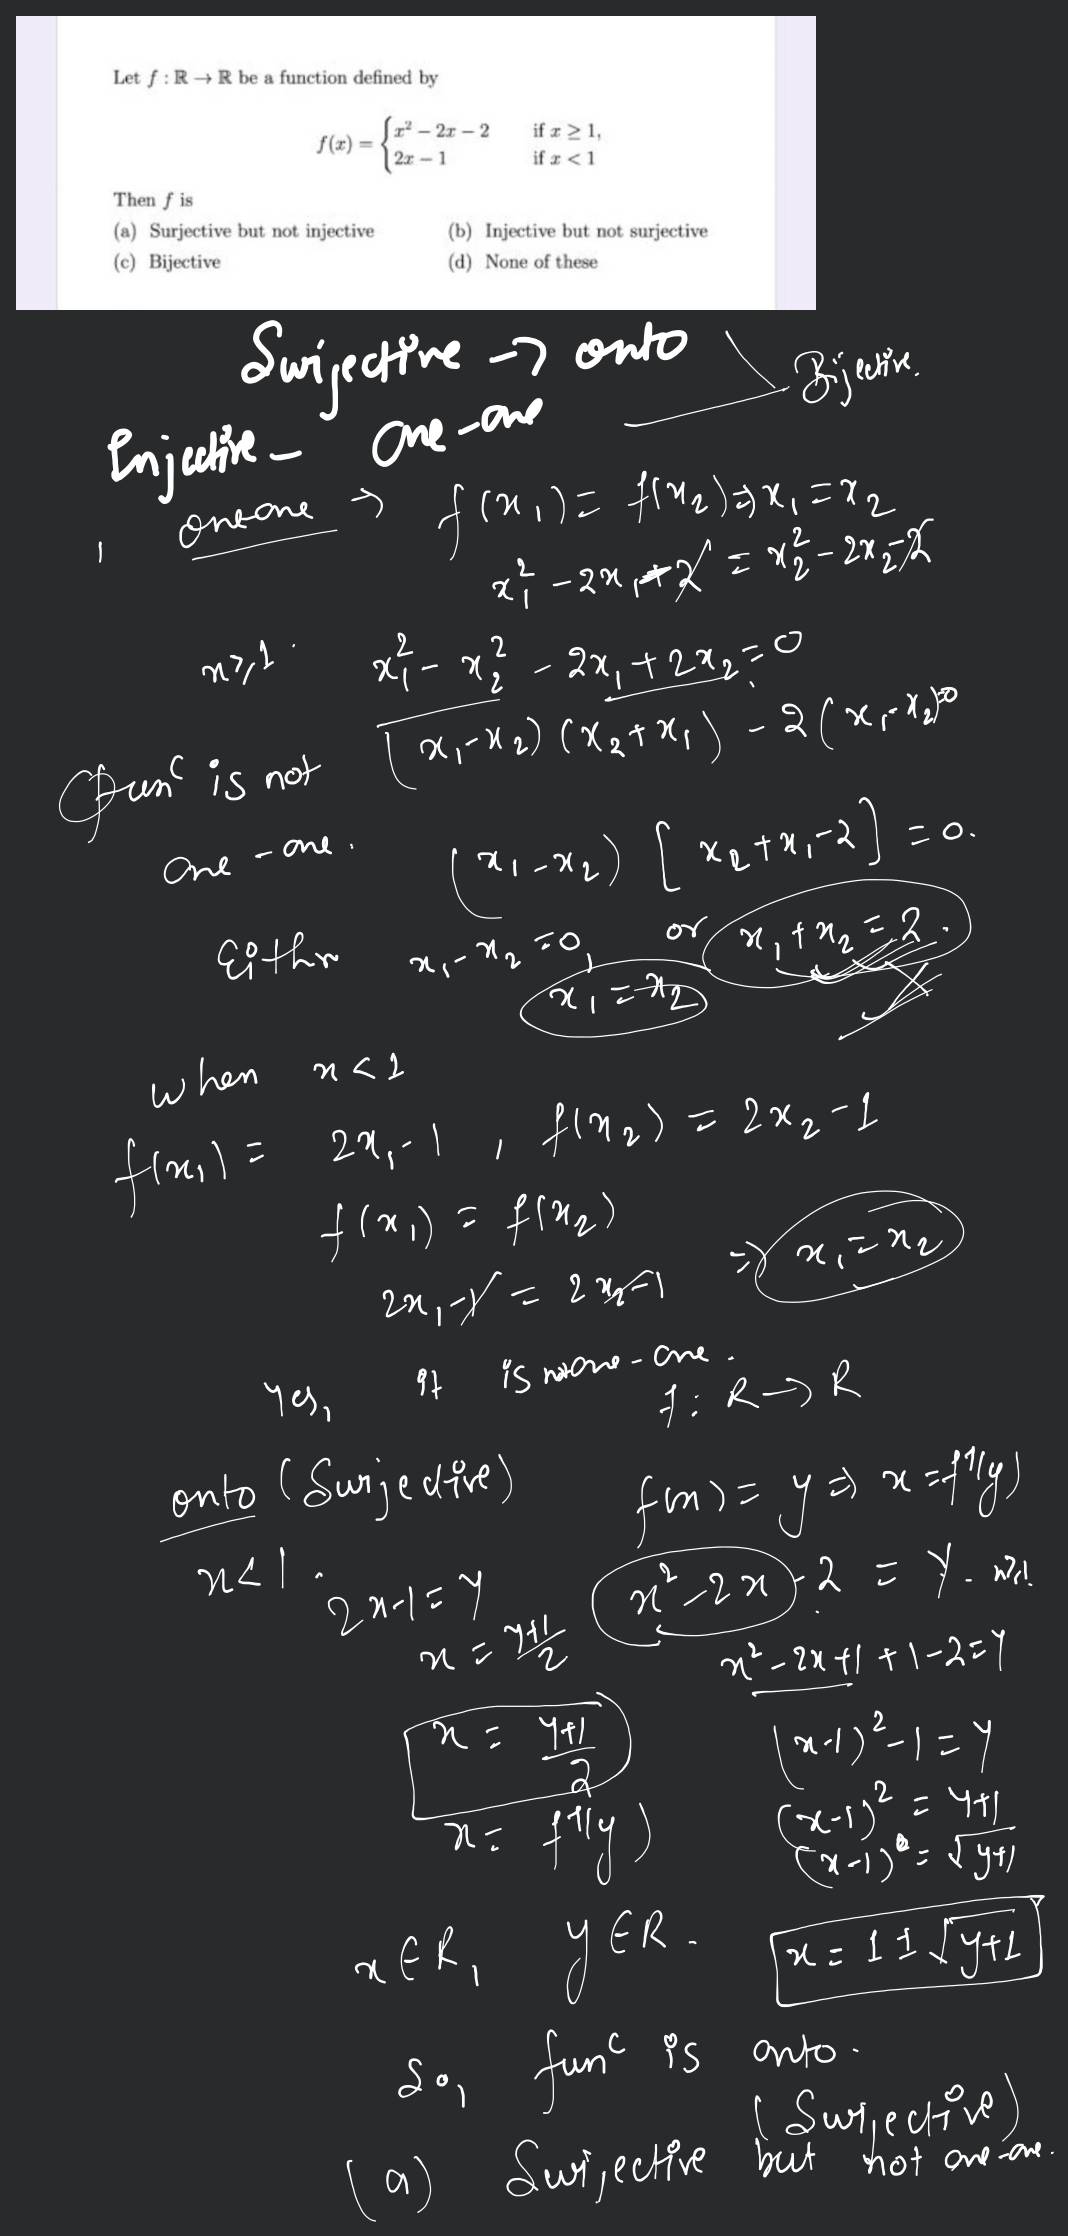 Let f : ℝ → ℝ be a function defined by
f(x) = { x² − 2x − 2 if x ≥ 1,
2x − 1 if x < 1
Then f is
(a) Surjective but not injective (b) Injective but not surjective
(c) Bijective (d) None of these
Surjective → onto
Bijective.
Injective – One-one
1, one-one → f(x₁) = f(x₂) ⇒ x₁ = x₂
x₁² − 2x₁ − 2 = x₂² − 2x₂ − 2
x ≥ 1. x₁² − x₂² − 2x₁ + 2x₂ = 0
(x₁ − x₂)(x₂ + x₁) − 2(x₁ − x₂) = 0
func is not
one-one. (x₁ − x₂) [x₂ + x₁ − 2] = 0.
Eithr x₁ − x₂ = 0, or x₁ + x₂ = 2.
x₁ = x₂
when x < 1
f(x₁) = 2x₁ − 1, f(x₂) = 2x₂ − 1
f(x₁) = f(x₂)
2x₁ − 1 = 2x₂ − 1 ⇒ x₁ = x₂
Yes, it is one-one.
f: R → R
onto (Surjective) f(x) = y ⇒ x = f⁻¹(y)
x < 1. 2x − 1 = y x² − 2x − 2 = y. x ≥ 1.
x = y+1/2 x² − 2x + 1 + 1 − 2 = y
x = y+1/2 (x−1)² − 1 = y
(x−1)² = y+1
x = f⁻¹(y) (x−1) = √y+1
x ∈ R, y ∈ R. x = 1 ± √y+1
So, func is onto.
(Surjective)
(a) Surjective but not one-one.